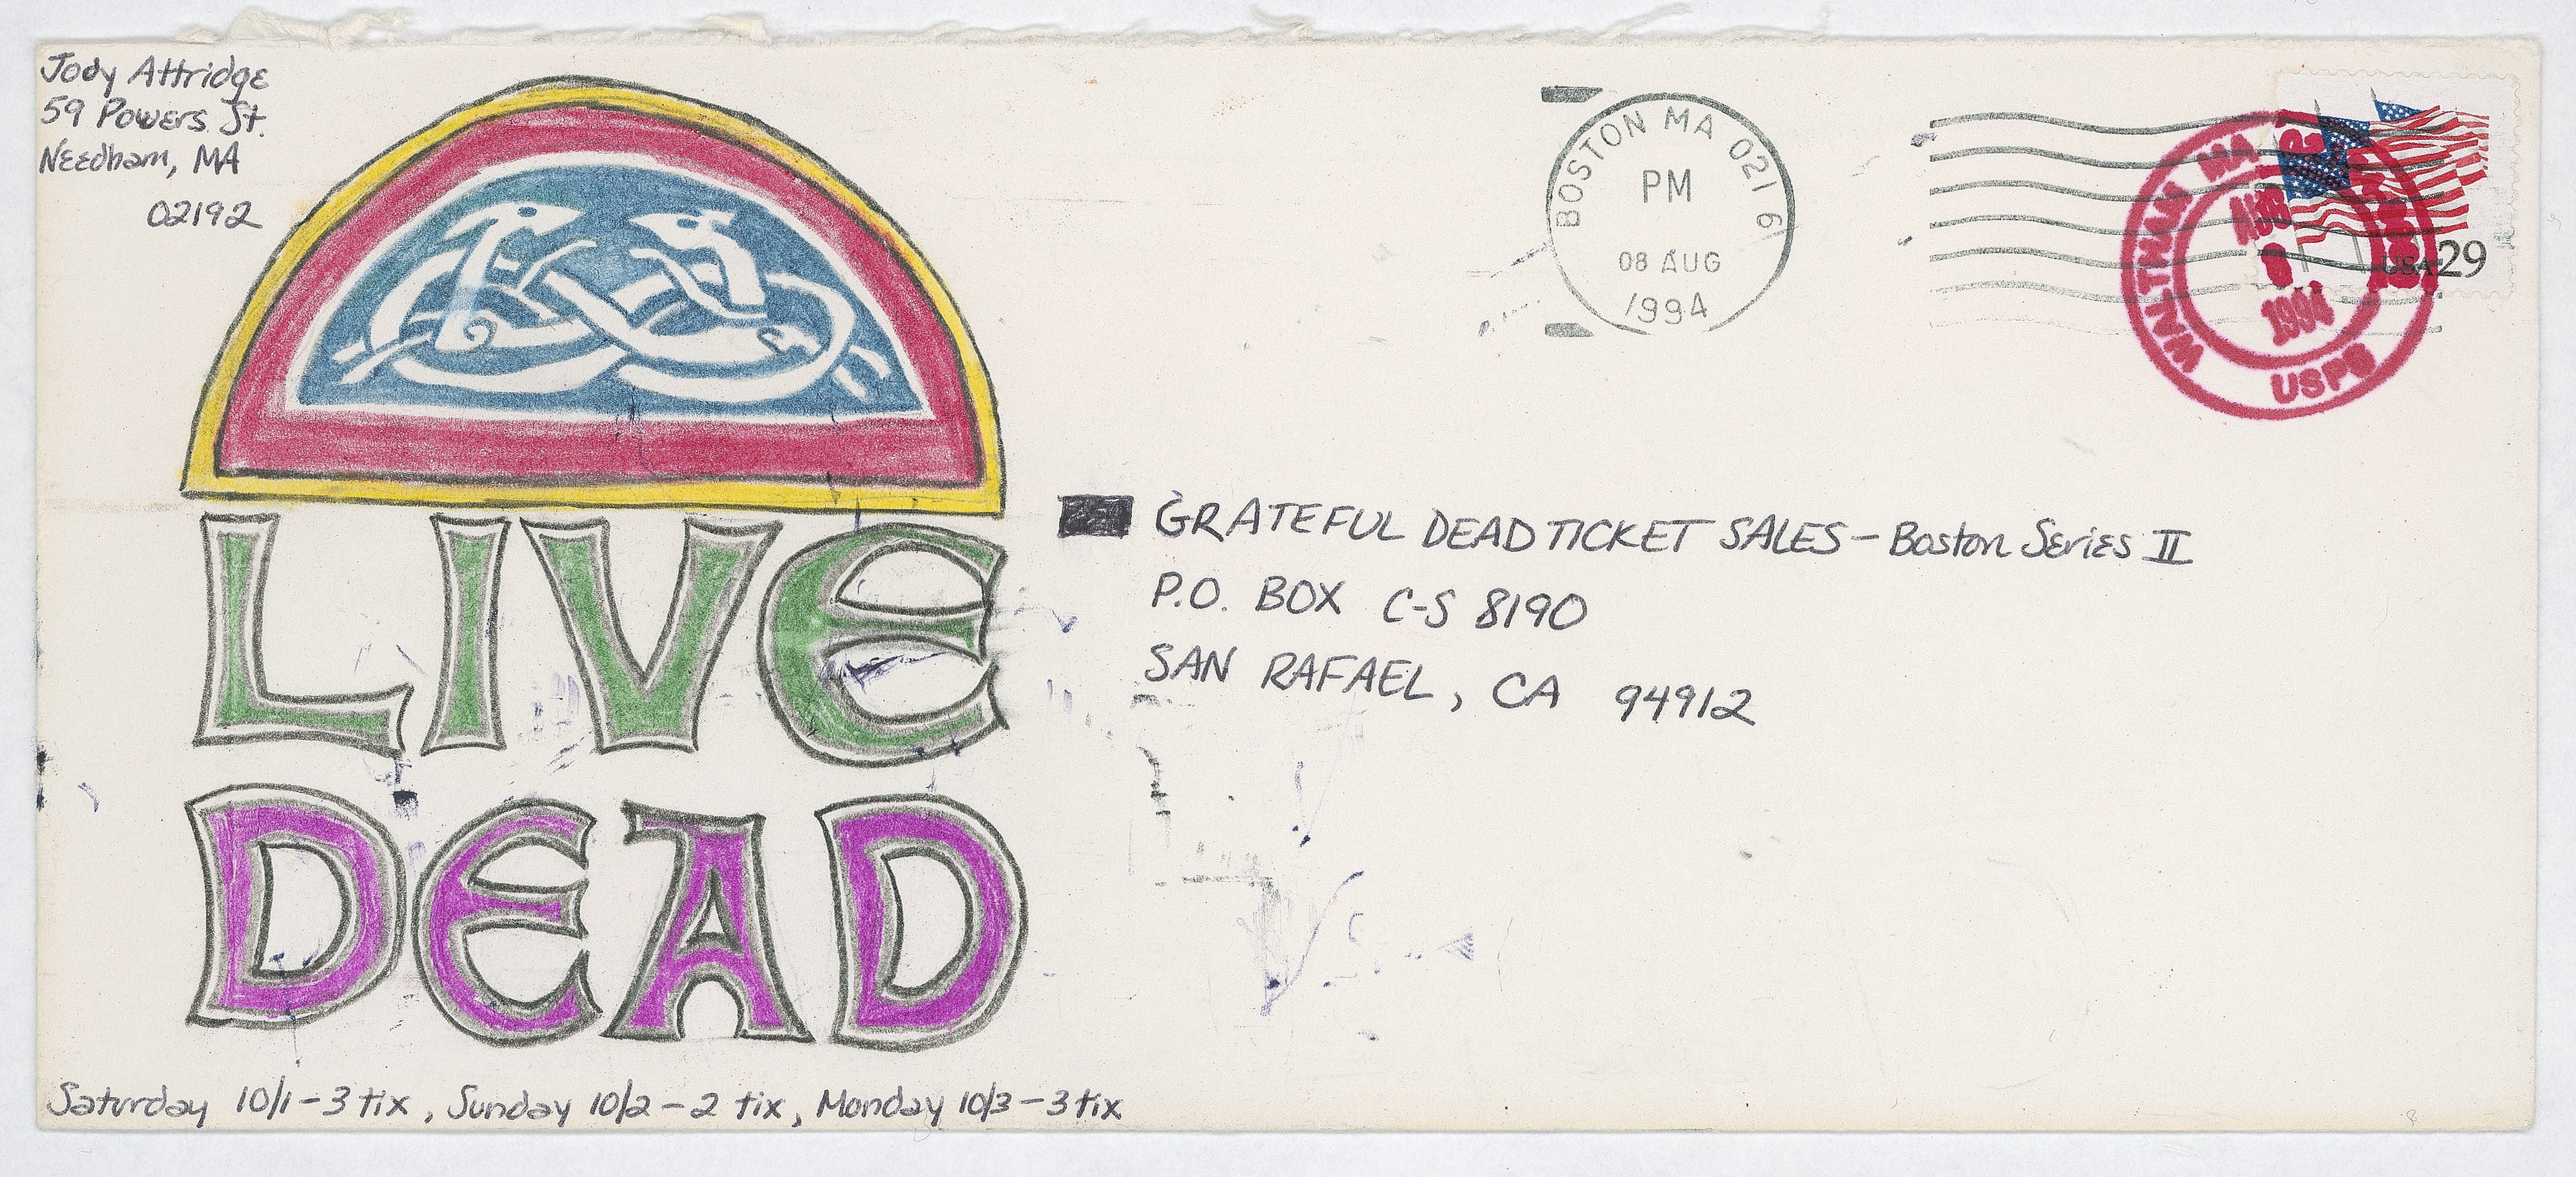 Jody Attridge
59 Powers St.
Needham, MA
02192
BOSTON MA 021 6
PM
08 AUG
1994
WALTHAM MA
AUG
1994
USPS
USA 29
LIVE
DEAD
GRATEFUL DEAD TICKET SALES - Boston Series II
P.O. BOX C-S 8190
SAN RAFAEL, CA 94912
Saturday 10/1 - 3 tix, Sunday 10/2 - 2 tix, Monday 10/3 - 3 tix